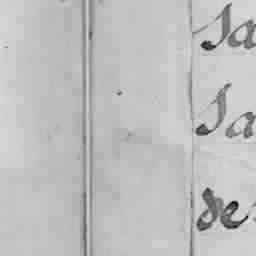 Sa
Sa
de